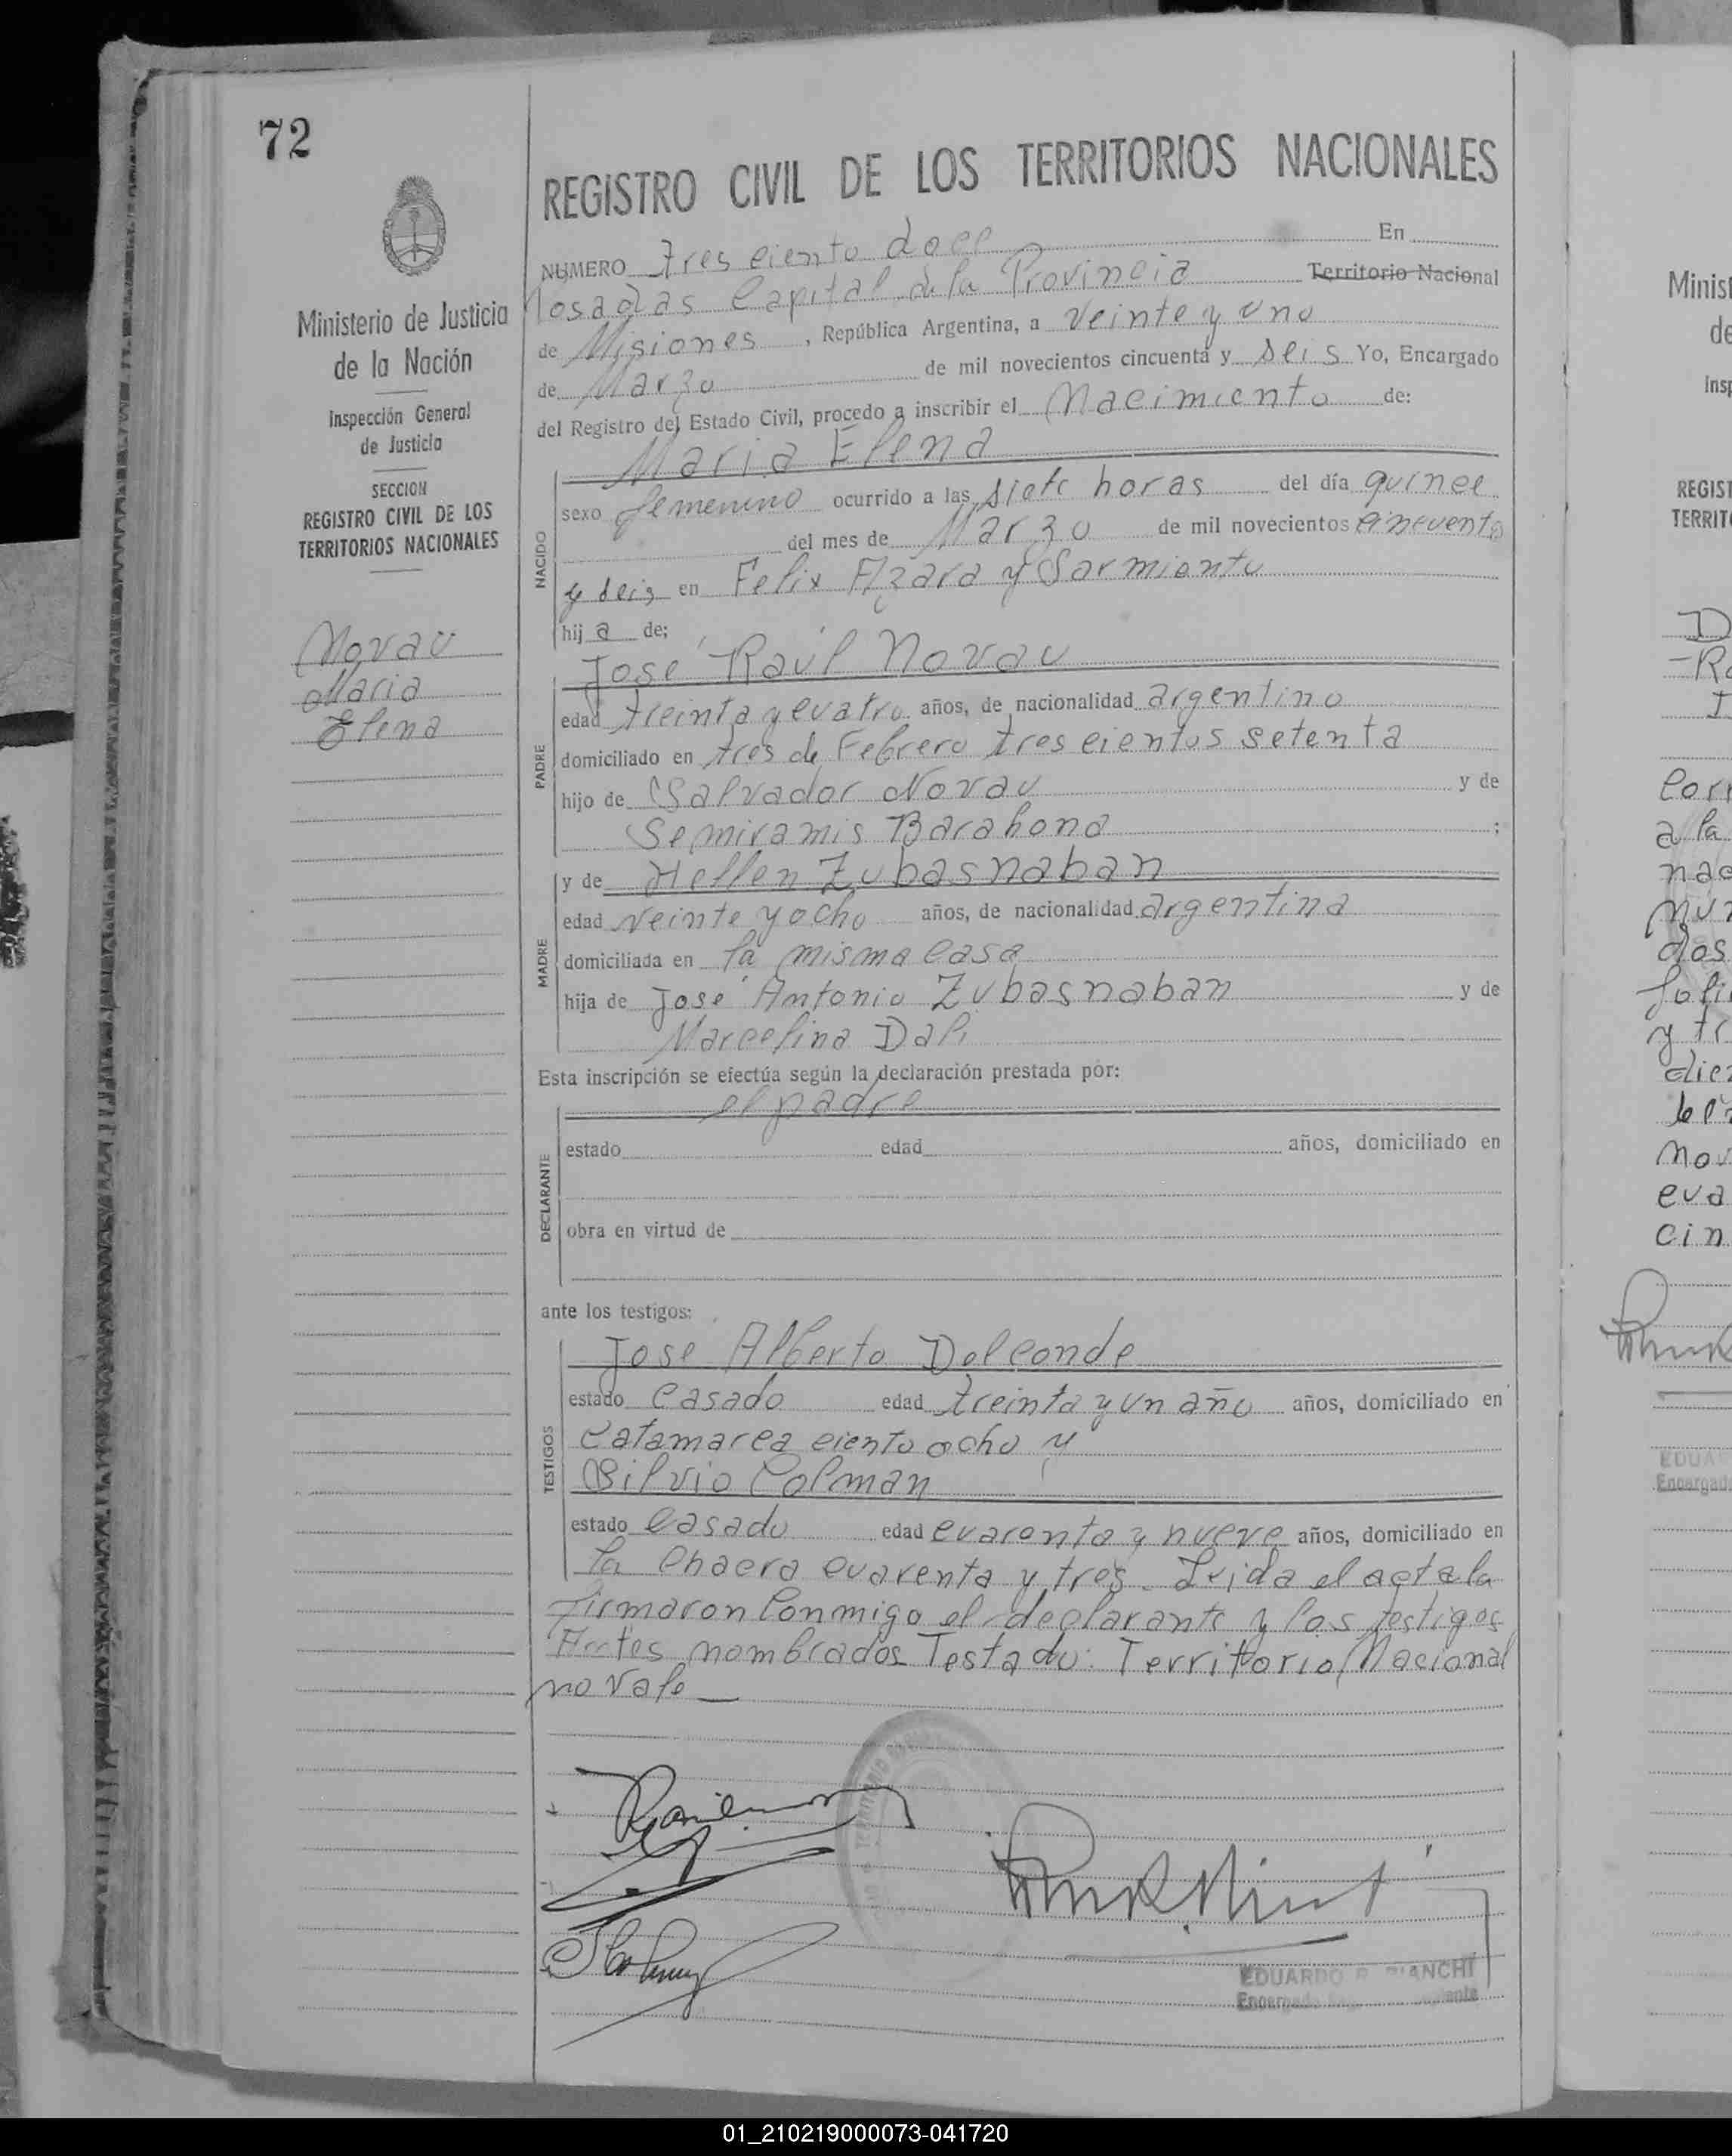 72
Ministerio de Justicia
de la Nación
Inspección General
de Justicia
SECCION
REGISTRO CIVIL DE LOS
TERRITORIOS NACIONALES
Novau
Maria
Elena
REGISTRO CIVIL DE LOS TERRITORIOS NACIONALES
NUMERO tres ciento doce En
Posadas Capital de la Provincia Territorio Nacional
de Misiones, República Argentina, a veinte y uno
de Marzo de mil novecientos cincuenta y seis Yo, Encargado
del Registro del Estado Civil, procedo a inscribir el Nacimiento de:
NACIDO
Maria Elena
sexo femenino ocurrido a las siete horas del día quince
del mes de Marzo de mil novecientos cincuenta
y seis en Felix Azara y Sarmiento
hij a de;
PADRE
José Raúl Novau
edad treinta y cuatro años, de nacionalidad argentino
domiciliado en tres de Febrero trescientos setenta
hijo de Salvador Novau y de
Semiramis Barahona ;
MADRE
y de Hellen Zubasnaban
edad veinte y ocho años, de nacionalidad argentina
domiciliada en la misma casa
hija de José Antonio Zubasnaban y de
Marcelina Dali
Esta inscripción se efectúa según la declaración prestada por:
DECLARANTE
el padre
estado edad años, domiciliado en
obra en virtud de
ante los testigos:
TESTIGOS
José Alberto Delconde
estado casado edad treinta y un año años, domiciliado en
Catamarca ciento ocho y
Silvio Colman
estado casado edad cuarenta y nueve años, domiciliado en
la chacra cuarenta y tres. Leida el acta la
firmaron conmigo el declarante y los testigos
Antes nombrados Testado: Territorio Nacional
no vale _
EDUARDO R. BIANCHI
Encargado
Minist
de
Insp
REGIST
TERRITO
a la
dos
y tr
cin
EDUA
Encargad
01_210219000073-041720